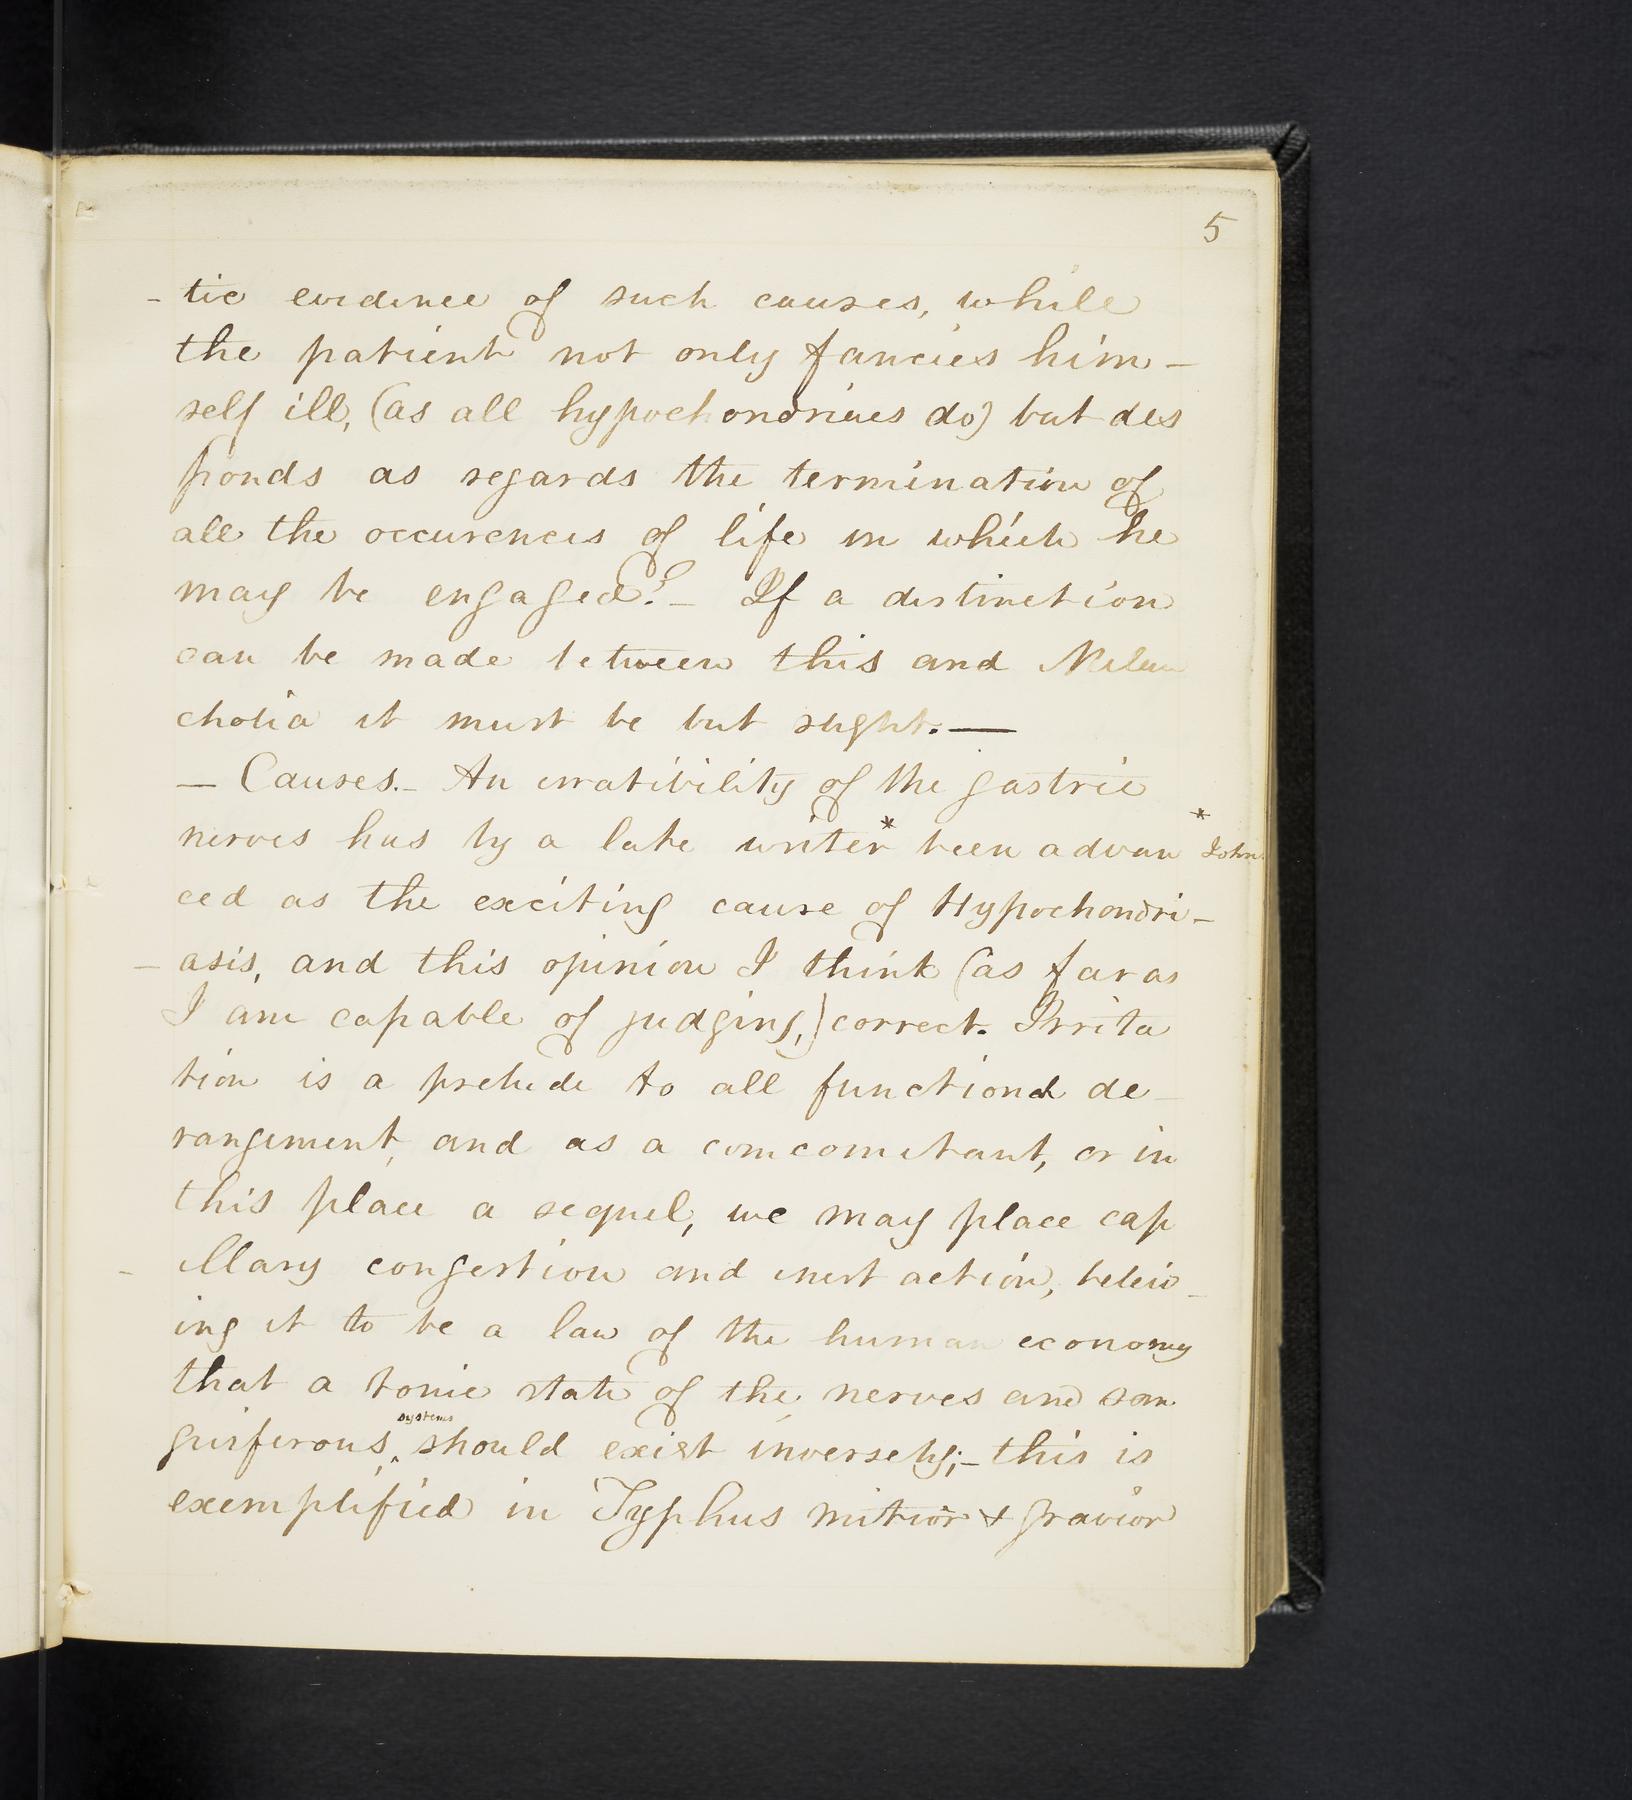 5
- tic evidence of such causes, while
the patient not only fancies him -
self ill, (as all hypochondriacs do) but des
ponds as regards the termination of
all the occurences of life in which he
may be engaged? - If a distinction
can be made between this and Melan
cholia it must be but slight. —
— Causes. - An irratibility of the gastric
nerves has by a late writer * been advan
* John
ced as the exciting cause of Hypochondri -
- asis, and this opinion I think (as far as
I am capable of judging,) correct. Irrita
tion is a prelude to all functional de -
rangement, and as a comcomitant, or in
this place a sequel, we may place cap
- illary congestion and inert action, beleiv -
ing it to be a law of the human economy
that a tonic state of the nerves and san
guiferous, ^ systems should exist inversely; - this is
exemplified in Typhus mitior & gravior